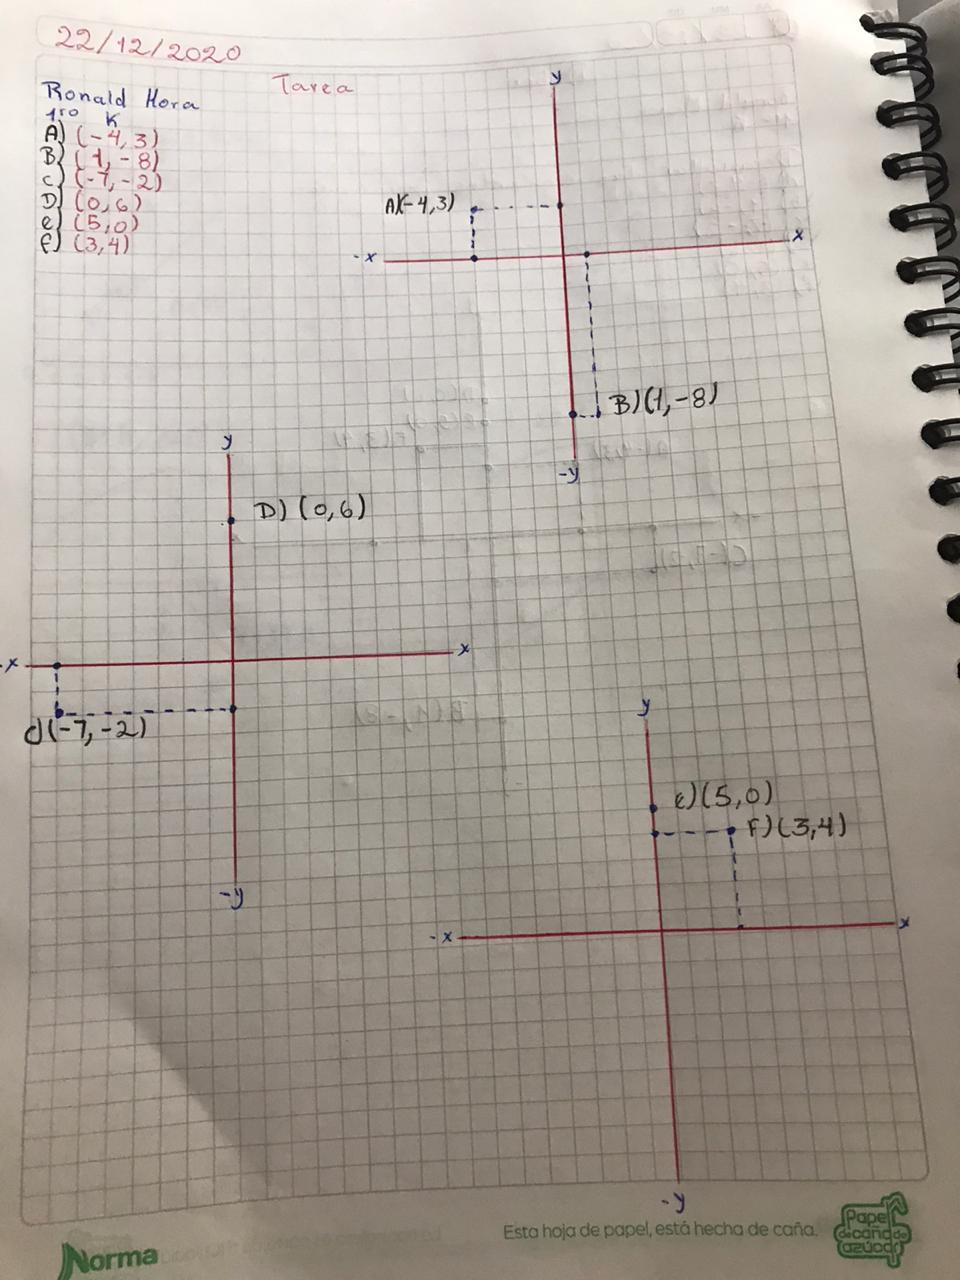 22/12/2020
Tarea
Ronald Mora
1ro K
A) (-4,3)
B) (1,-8)
C) (-7,-2)
D) (0,6)
e) (5,0)
f) (3,4)
y
A)(-4,3)
-x
x
B)(1,-8)
-y
y
D) (0,6)
-x
x
C)(-7,-2)
-y
y
e)(5,0)
F)(3,4)
-x
x
-y
Norma
Esta hoja de papel, está hecha de caña.
Papel
de caña de
azúcar